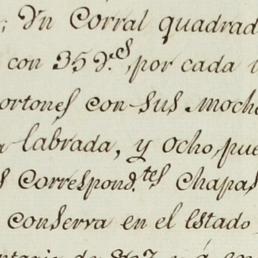 ; Un Corral quadrad
con 35 v.s, por cada
ortones con sus moch
labrada, y ocho pue
s correspond.tes chapas
conserva en el estado